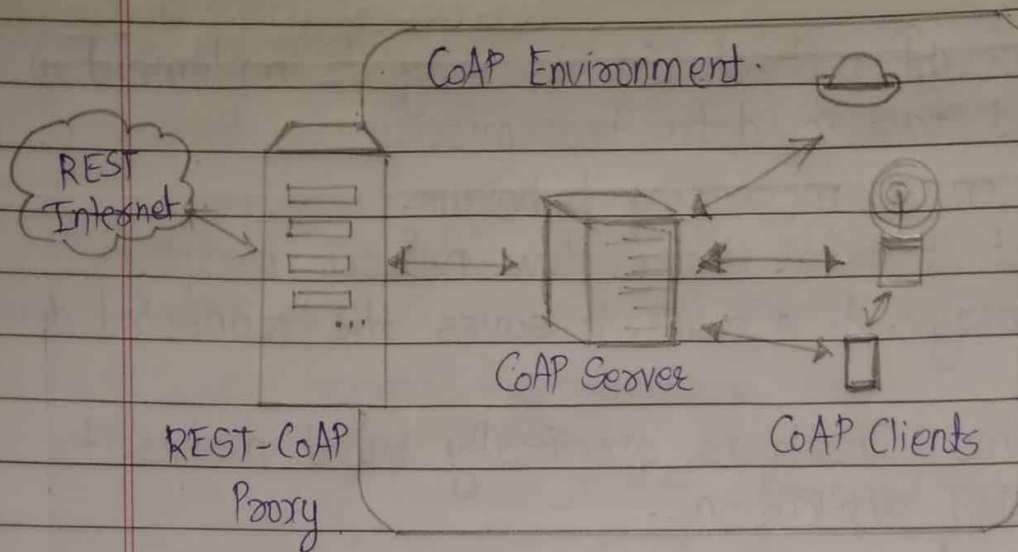 CoAP Environment.
REST
Internet
CoAP Server
REST-CoAP
Proxy
CoAP Clients